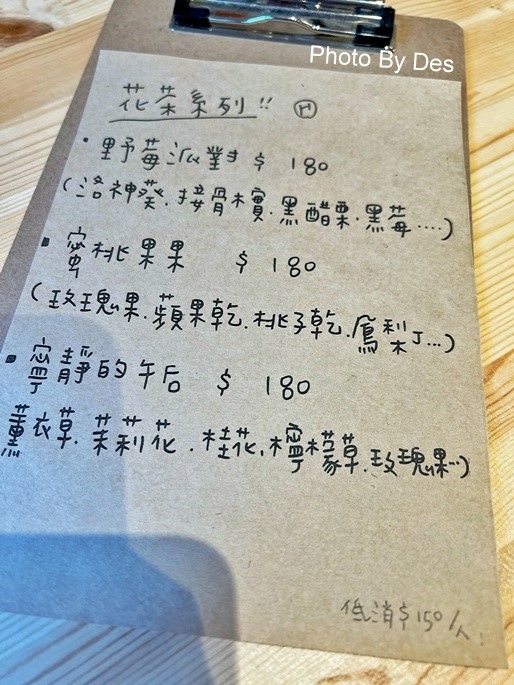 Photo By Des
花茶系列!! Ⓗ
·野莓派對 $ 180
(洛神葵.接骨木實.黑醋栗.黑莓....)
▪蜜桃果果 $ 180
(玫瑰果.蘋果乾.桃子乾.鳳梨丁...)
▪寧靜的午后 $ 180
薰衣草.茉莉花.桂花,檸檬草.玫瑰果...)
低消$150/人.